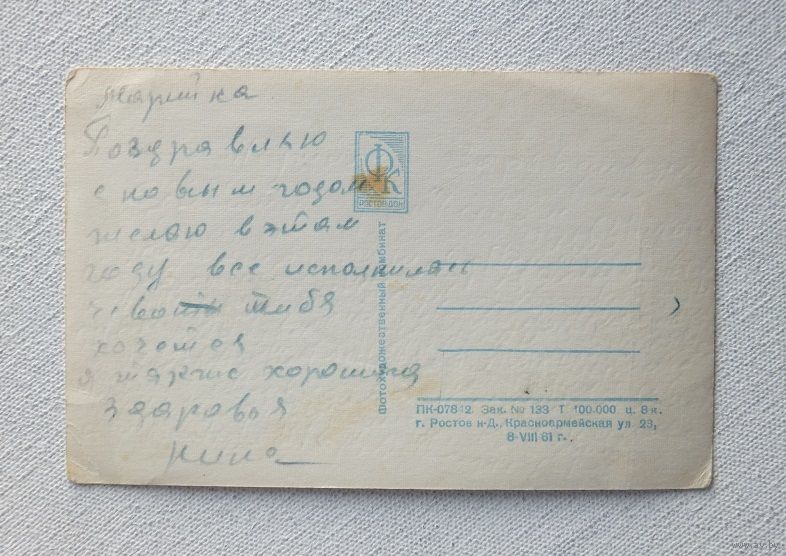 Марийка
Поздравлию
с новым годом
желаю в этом
году все исполнилось
чево тибя
хочется
я также хорошива
здоровья
Нина
ФК
РОСТОВ-ДОН
Фотохудожественный комбинат
ПК-07812. Зак. № 133 Т 100.000 ц. 8 к.
г. Ростов н-Д., Красноармейская ул. 23,
8-VIII 61 г.
www.ay.by